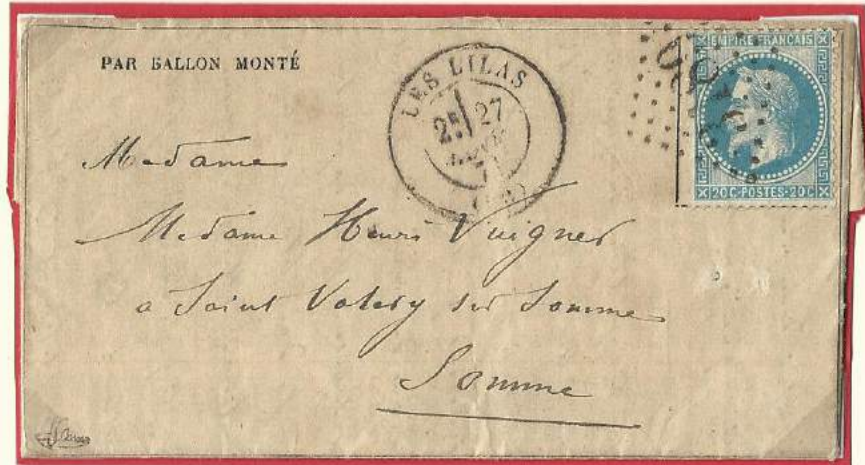 PAR BALLON MONTÉ
LES LILAS
2E 27
EMPIRE FRANÇAIS
20C-POSTES-20C
Madame
Madame Henri Vuigner
a Saint Valery sur Somme
Somme